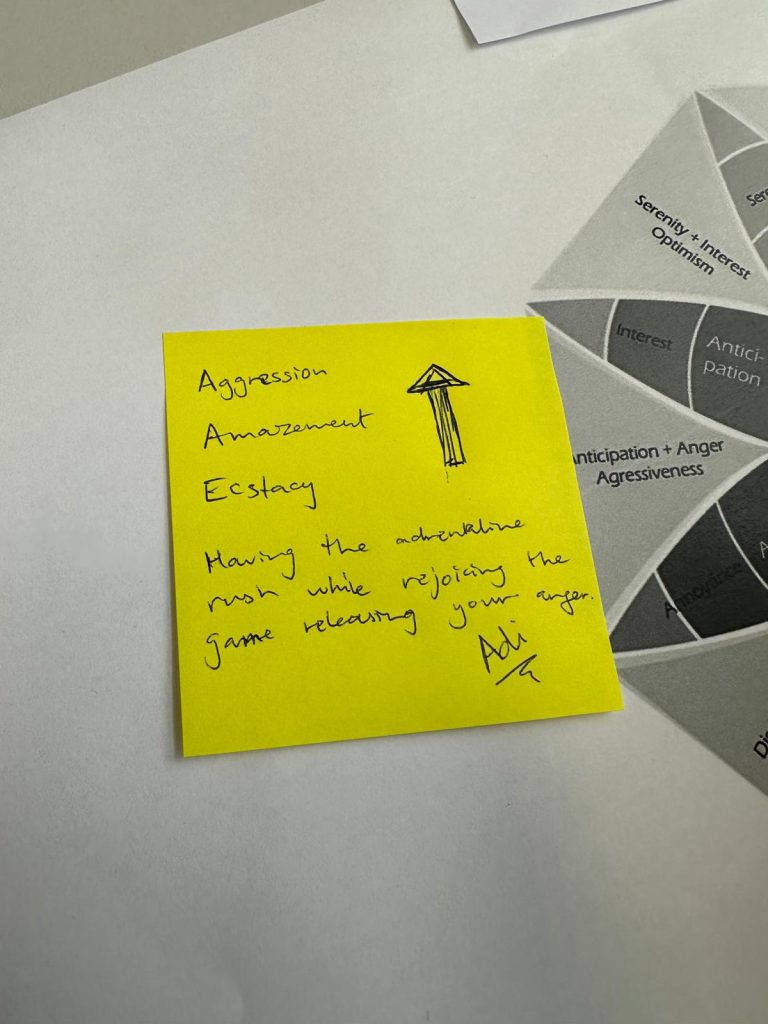 Aggression
Amazement
Ecstacy
Having the adrenaline
rush while rejoicing the
game releasing your anger.
Adi
Serenity + Interest
Optimism
Interest
Antici-
pation
nticipation + Anger
Agressiveness
Annoyance